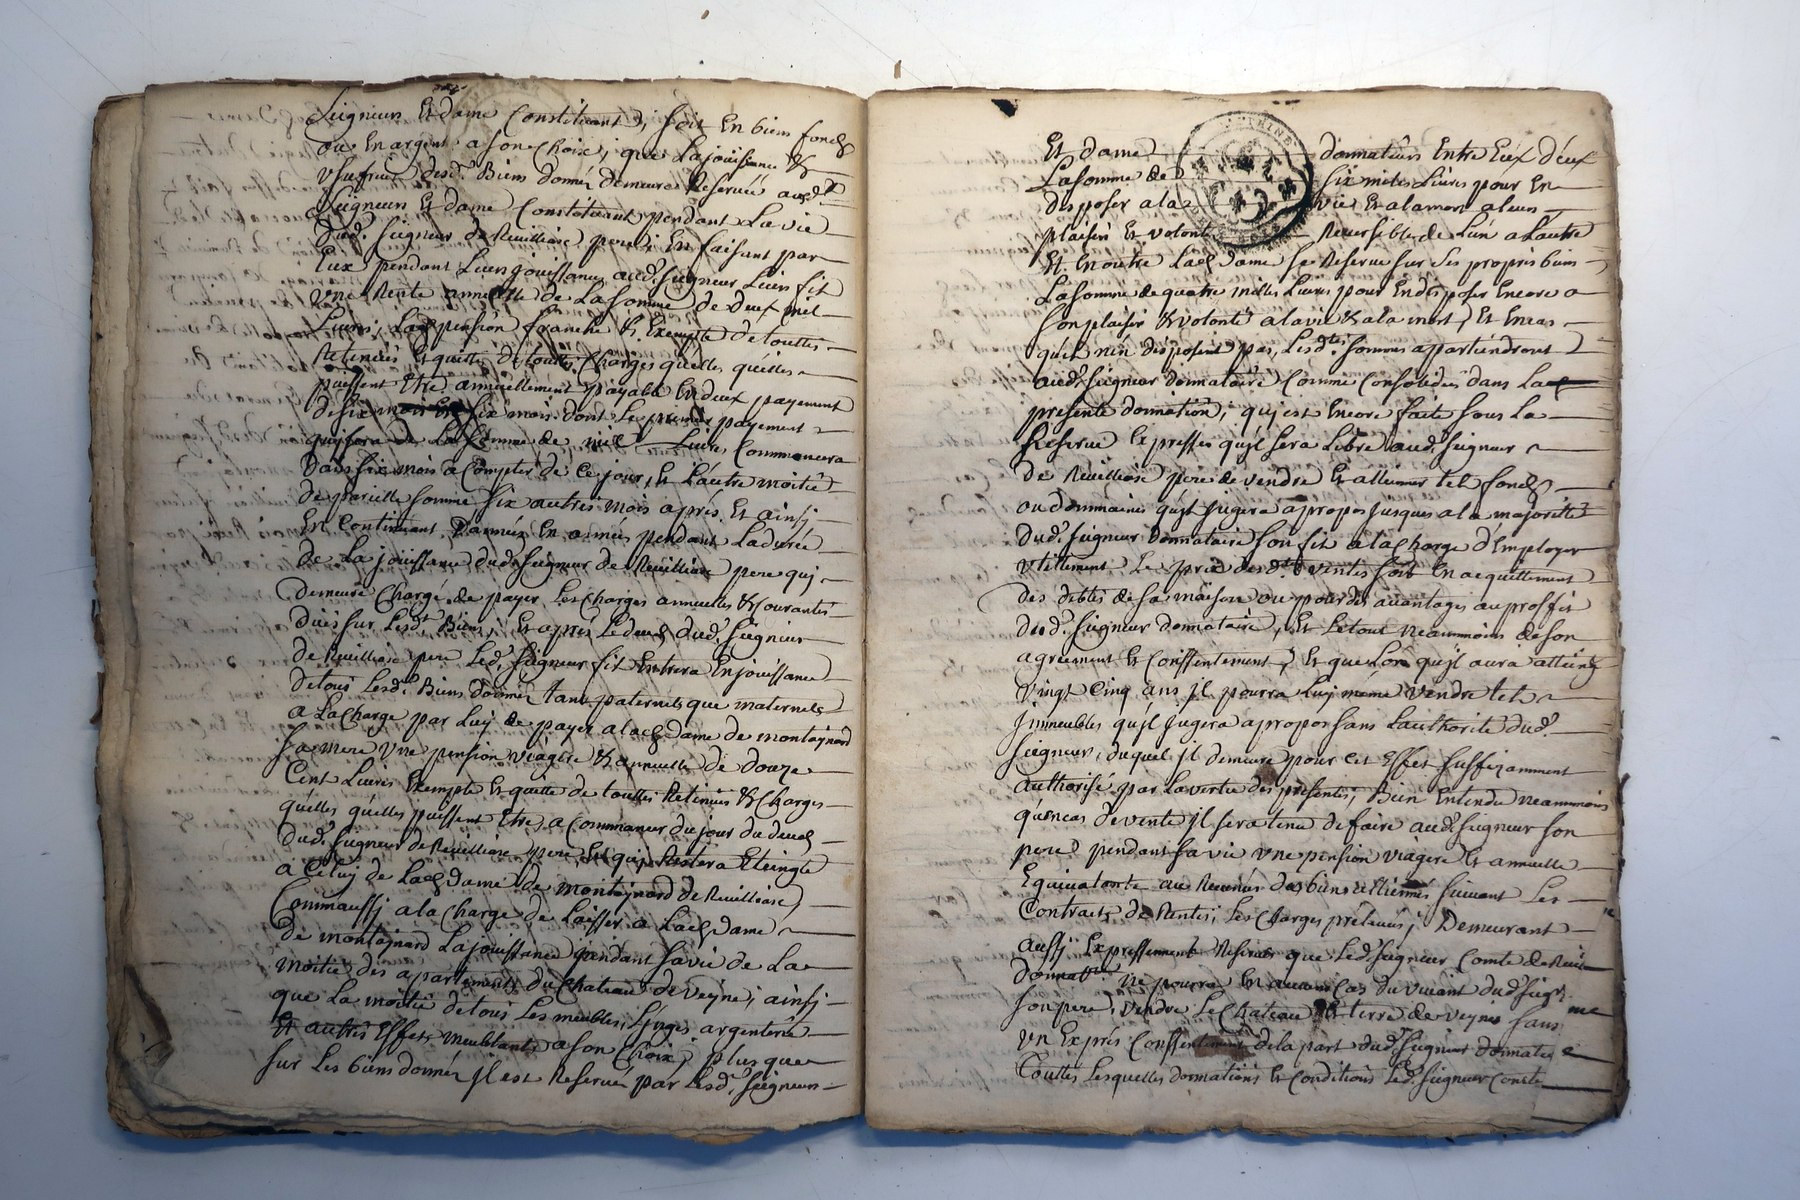 Seigneur Et dame Constituants, soit En bien fonds
ou En argent a son Choix, que La jouissance &
Usufruit desd. Biens donnéz demeure Reservée ausd.
Seigneur Et dame Constituant pendant La vie
Dud. Seigneur de Reuilliasc pere; En faisant par
Eux pendant Leur jouissance aud. Seigneur Leur fil
Vne Rente annuelle de La somme de deux mil
Livres, Lad. pension franche & Exempte de touttes
Retenües Et quitte de touttes Charges qu'elles qu'elles
puissent Etre annuellement payable En deux payement
de six mois En six mois dont Le premier payement
qui sera de La somme de mil Livres Commencera
Dans six mois a Compter de Ce jour, Et L'autre moitié
de pareille somme six autres mois aprés. Et ainsi
En Continuant D'année En année pendant La durée
de La jouissance dud. Seigneur de Reuilliasc pere qui
demeure Chargé de payer Les Charges annuelles & Courantes
Dües sur Lesd. Biens; Et aprés Le deces dud. Seigneur
de Reuilliasc pere Led. Seigneur fil Entrera En jouissance
De tous Lesd. Biens donnéz tant paternels que maternels
a La Charge par Luy de payer a lad. dame de montaynard
sa mere Vne pension Viagere & annuelle de douze
Cent Livres Exempte Et quitte de touttes Retenües & Charges
qu'elles qu'elles puissent Etre, a Commancer du jour du deces
Dud. Seigneur de Reuilliasc pere, Et qui Restera Eteingte
a Celuy de Lad. dame de montaynard de Reuilliasc,
Comm'aussi a la Charge de Laisser a Lad. Dame
de montaynard La jouissance pendant sa vie de La
moitié des apartements du Chateau de Veyne, ainsi
que La moitié de tous Les meubles, Linges argenterie
Et autres Effets meublants a son Choix, plus que
sur Les biens donnéz jl est Reservé par Lesd. Seigneur
Et dame donnateurs Entre Eux deux
La somme de six milles Livres pour En
disposer a la vie Et a la mort a leurs
plaisirs Et volonté Reversible de L'un a L'autre
Et En outre Lad. dame se Reserve sur ses propres biens
La somme de quatre milles Livres pour En disposer Encore a
son plaisir & volonté a la vie & a la mort, Et En cas
qu'il n'en disposent pas, Lesd. sommes apartiendront
aud. Seigneur donnataire Comme Consolidées dans La
presente donnation; qui est Encore faite sous La
Reserve Expresse qu'jl sera Libre aud. Seigneur
de Reuilliasc pere de vendre Et alliener tel fonds
ou dommaines qu'jl jugera a propos jusques a la majorité
Dud. Seigneur donnataire son fil a la Charge d'Employer
Vtillement Le prix desd. ventes soit En acquittement
des debtes de sa maison ou pour des avantages au proffit
dud. Seigneur donnataire, Et Le tout neanmoins de son
agreement Et Conssentement, Et que Lors qu'jl aura atteint
vingt Cinq ans jl pourra Luy même vendre tels
jmmeubles qu'jl jugera a propos sans L'authorité dud.
Seigneur, duquel jl demeure pour cet Effet suffizamment
authorisé par La vertu des presentes, Bien Entendu neanmoins
qu'En cas de vente jl sera tenu de faire aud. Seigneur son
pere pendant sa vie Vne pension viagere Et annuelle
Equivalente au Revenus des biens alliennés suivant Les
Contrats de Rentes, Les Charges prélevées; Demeurant
aussi Expressement Reservé que Led. Seigneur Comte de
donnat.re ne pourra En aucun Cas du vivant dud. Seig.r
son pere, vendre Le Chateau & terre de veynes sans
Vn Exprés Conssentement de la part dud. Seigneur
Touttes Lesquelles donnations Et Conditions Led. Seigneur Comte